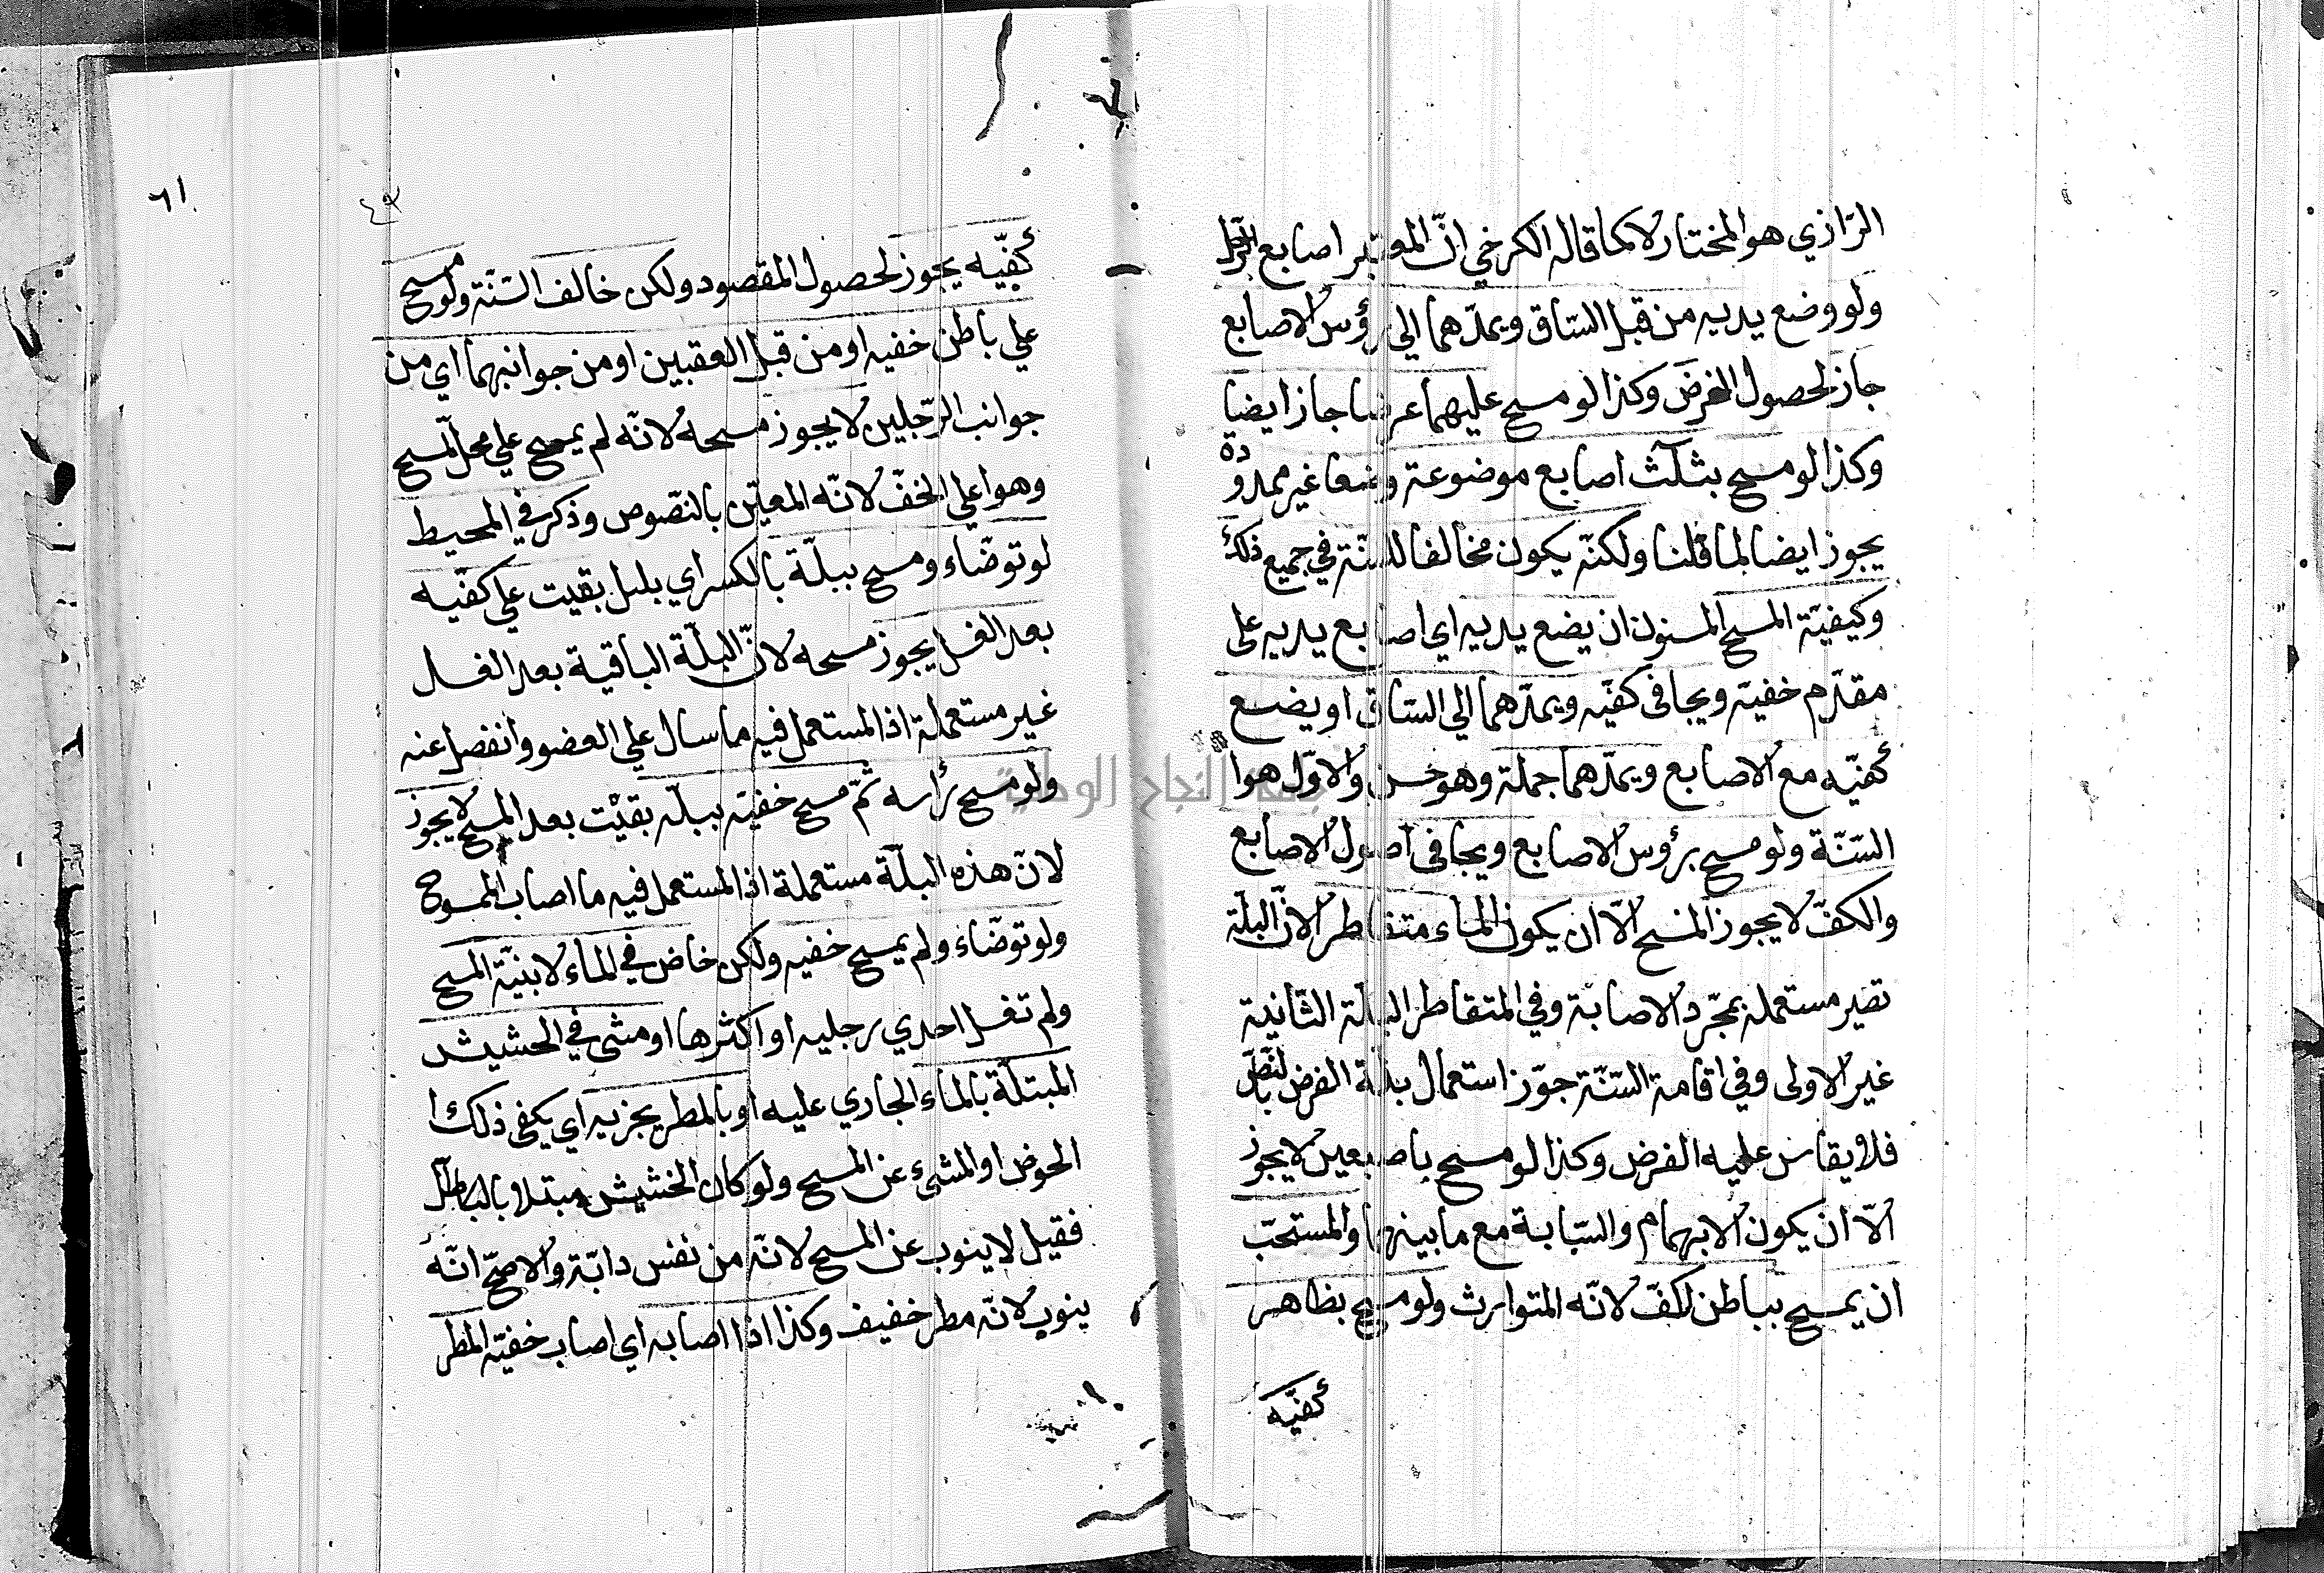 الرّازي هو المختار لا كما قاله الكرخي انّ المعتبر اصابع الرّجل
ولو وضع يديه من قبل السّاق ويمدّهما الي رؤس الاصابع
جاز لحصول الفرض وكذا لو مسح عليهما عرضا جاز ايضا
وكذا لو مسح بثلث اصابع موضوعة وضعا غير ممدودة
يجوز ايضا لما قلنا ولكنّه يكون مخالفا للسّنّة في جميع ذلك
وكيفيّة المسح المسنون ان يضع يديه اي اصابع يديه على
مقدّم خفيّه ويجافى كفّيه ويمدّهما الي السّاق او يضع
كفيّه مع الاصابع ويمدّهما جملة وهو حسن والاوّل هوا
السّنّة ولو مسح برؤس الاصابع ويجافى اصول الاصابع
والكفّ لا يجوز المسح الاّ ان يكون الماء متقاطرا لانّ البلّة
تصير مستعملة بمجرّد الاصابة وفي المتقاطر البلّة الثّانية
غير الاولى وفي اقامة السّنّة جوّز استعمال بلّة الفرض بالنّصّ
فلا يقاس عليه الفرض وكذا لو مسح باصبعين لا يجوز
الاّ ان يكون الابهام والسّبابة مع ما بينهما والمستحبّ
ان يمسح بباطن لكفّ لانّه المتوارث ولو مسح بظاهر
كفيّه
٦١
٤٩
كفّيه يجوز لحصول المقصود ولكن خالف السّنّة ولو مسح
علي باطن خفيه او من قبل العقبين او من جوانبهما اي من
جوانب الرّجلين لا يجوز مسحه لانّه لم يمسح علي محلّ المسح
وهو اعلي الخفّ لانّه المعيّن بالنّصوص وذكر في المحيط
لو توضّاء ومسح ببلّة بالكسر اي بلل بقيت علي كفّيه
بعد الغسل يجوز مسحه لانّ البلّة الباقية بعد الغسل
غير مستعملة اذ المستعمل فيه ما سال علي العضو وانفصل عنه
ولو مسح رأسه ثمّ مسح خفيّه ببلّة بقيت بعد المسح لا يجوز
لانّ هذه البلّة مستعملة اذ المستعمل فيه ما اصاب الممسوح
ولو توضّاء ولم يمسح خفيه ولكن خاض في الماء لا بنيّة المسح
ولم تغسل احدي رجليه او اكثرها او مشى في الحشيش
المبتلّة بالماء الجاري عليه او بالمطر يجزيه اي يكفى ذلك ا
الخوض او المشيء عن المسح ولو كان الخشيش مبتلا بالطلّ
فقيل لا ينوب عن المسح لانّه من نفس دابّة والاصحّ انّه
ينوب لانّه مطر خفيف وكذا اذا اصابه اي اصاب خفيّه المطر